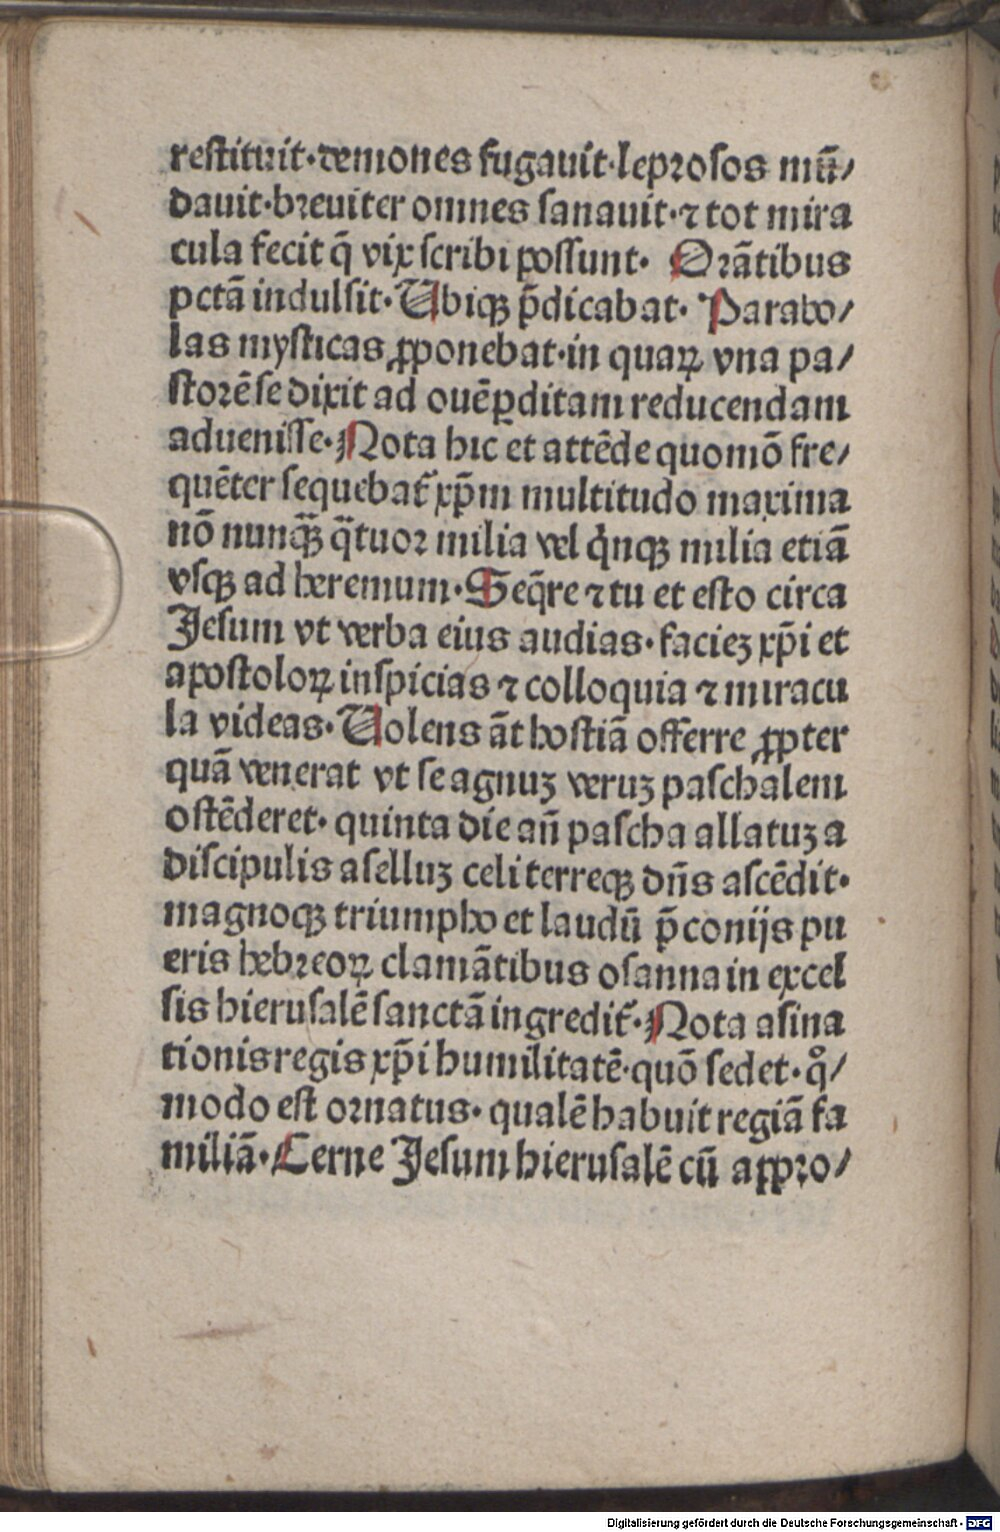 restituit·demones fugauit·leprosos mū/
dauit·breuiter omnes sanauit·⁊ tot mira
cula fecit q̄ vix scribi possunt· Orātibus
pctā indulsit·Ubiqꝫ p̄dicabat· Parabo/
las mysticas ꝓponebat·in quaꝝ vna pa/
storē se dixit ad ouē ꝑditam reducendam
aduenisse·Nota hic et attēde quomō fre/
quēter sequebat᷑ xp̄m multitudo maxima
nō nunqꝫ̄ q̄tuor milia vel q̇nqꝫ milia etiā
vsqꝫ ad heremum·Seq̄re ⁊ tu et esto circa
Jesum vt verba eius audias·facieꝫ xp̄i et
apostoloꝝ inspicias ⁊ colloquia ⁊ miracu
la videas·Uolens āt hostiā offerre ꝓpter
quā venerat vt se agnuꝫ veruꝫ paschalem
ostēderet· quinta die añ pascha allatuꝫ a
discipulis aselluꝫ celi terreqꝫ dn̄s ascēdit·
magnoqꝫ triumpho et laudū p̄conijs pu
eris hebreoꝝ clamātibus osanna in excel
sis hierusalē sanctā ingredit᷑·Nota asina
tionis regis xp̄i humilitatē·quō sedet·qͦ/
modo est ornatus· qualē habuit regiā fa
miliā·Cerne Jesum hierusalē cū appro/
Digitalisierung gefördert durch die Deutsche Forschungsgemeinschaft - DFG